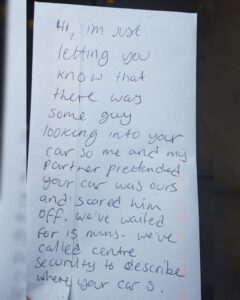 Hi, im just
letting you
know that
there was
some guy
looking into your
car so me and my
partner pretended
your car was ours
and scared him
off. we've waited
for 15 mins. we've
called centre
security to describe
where your car is.